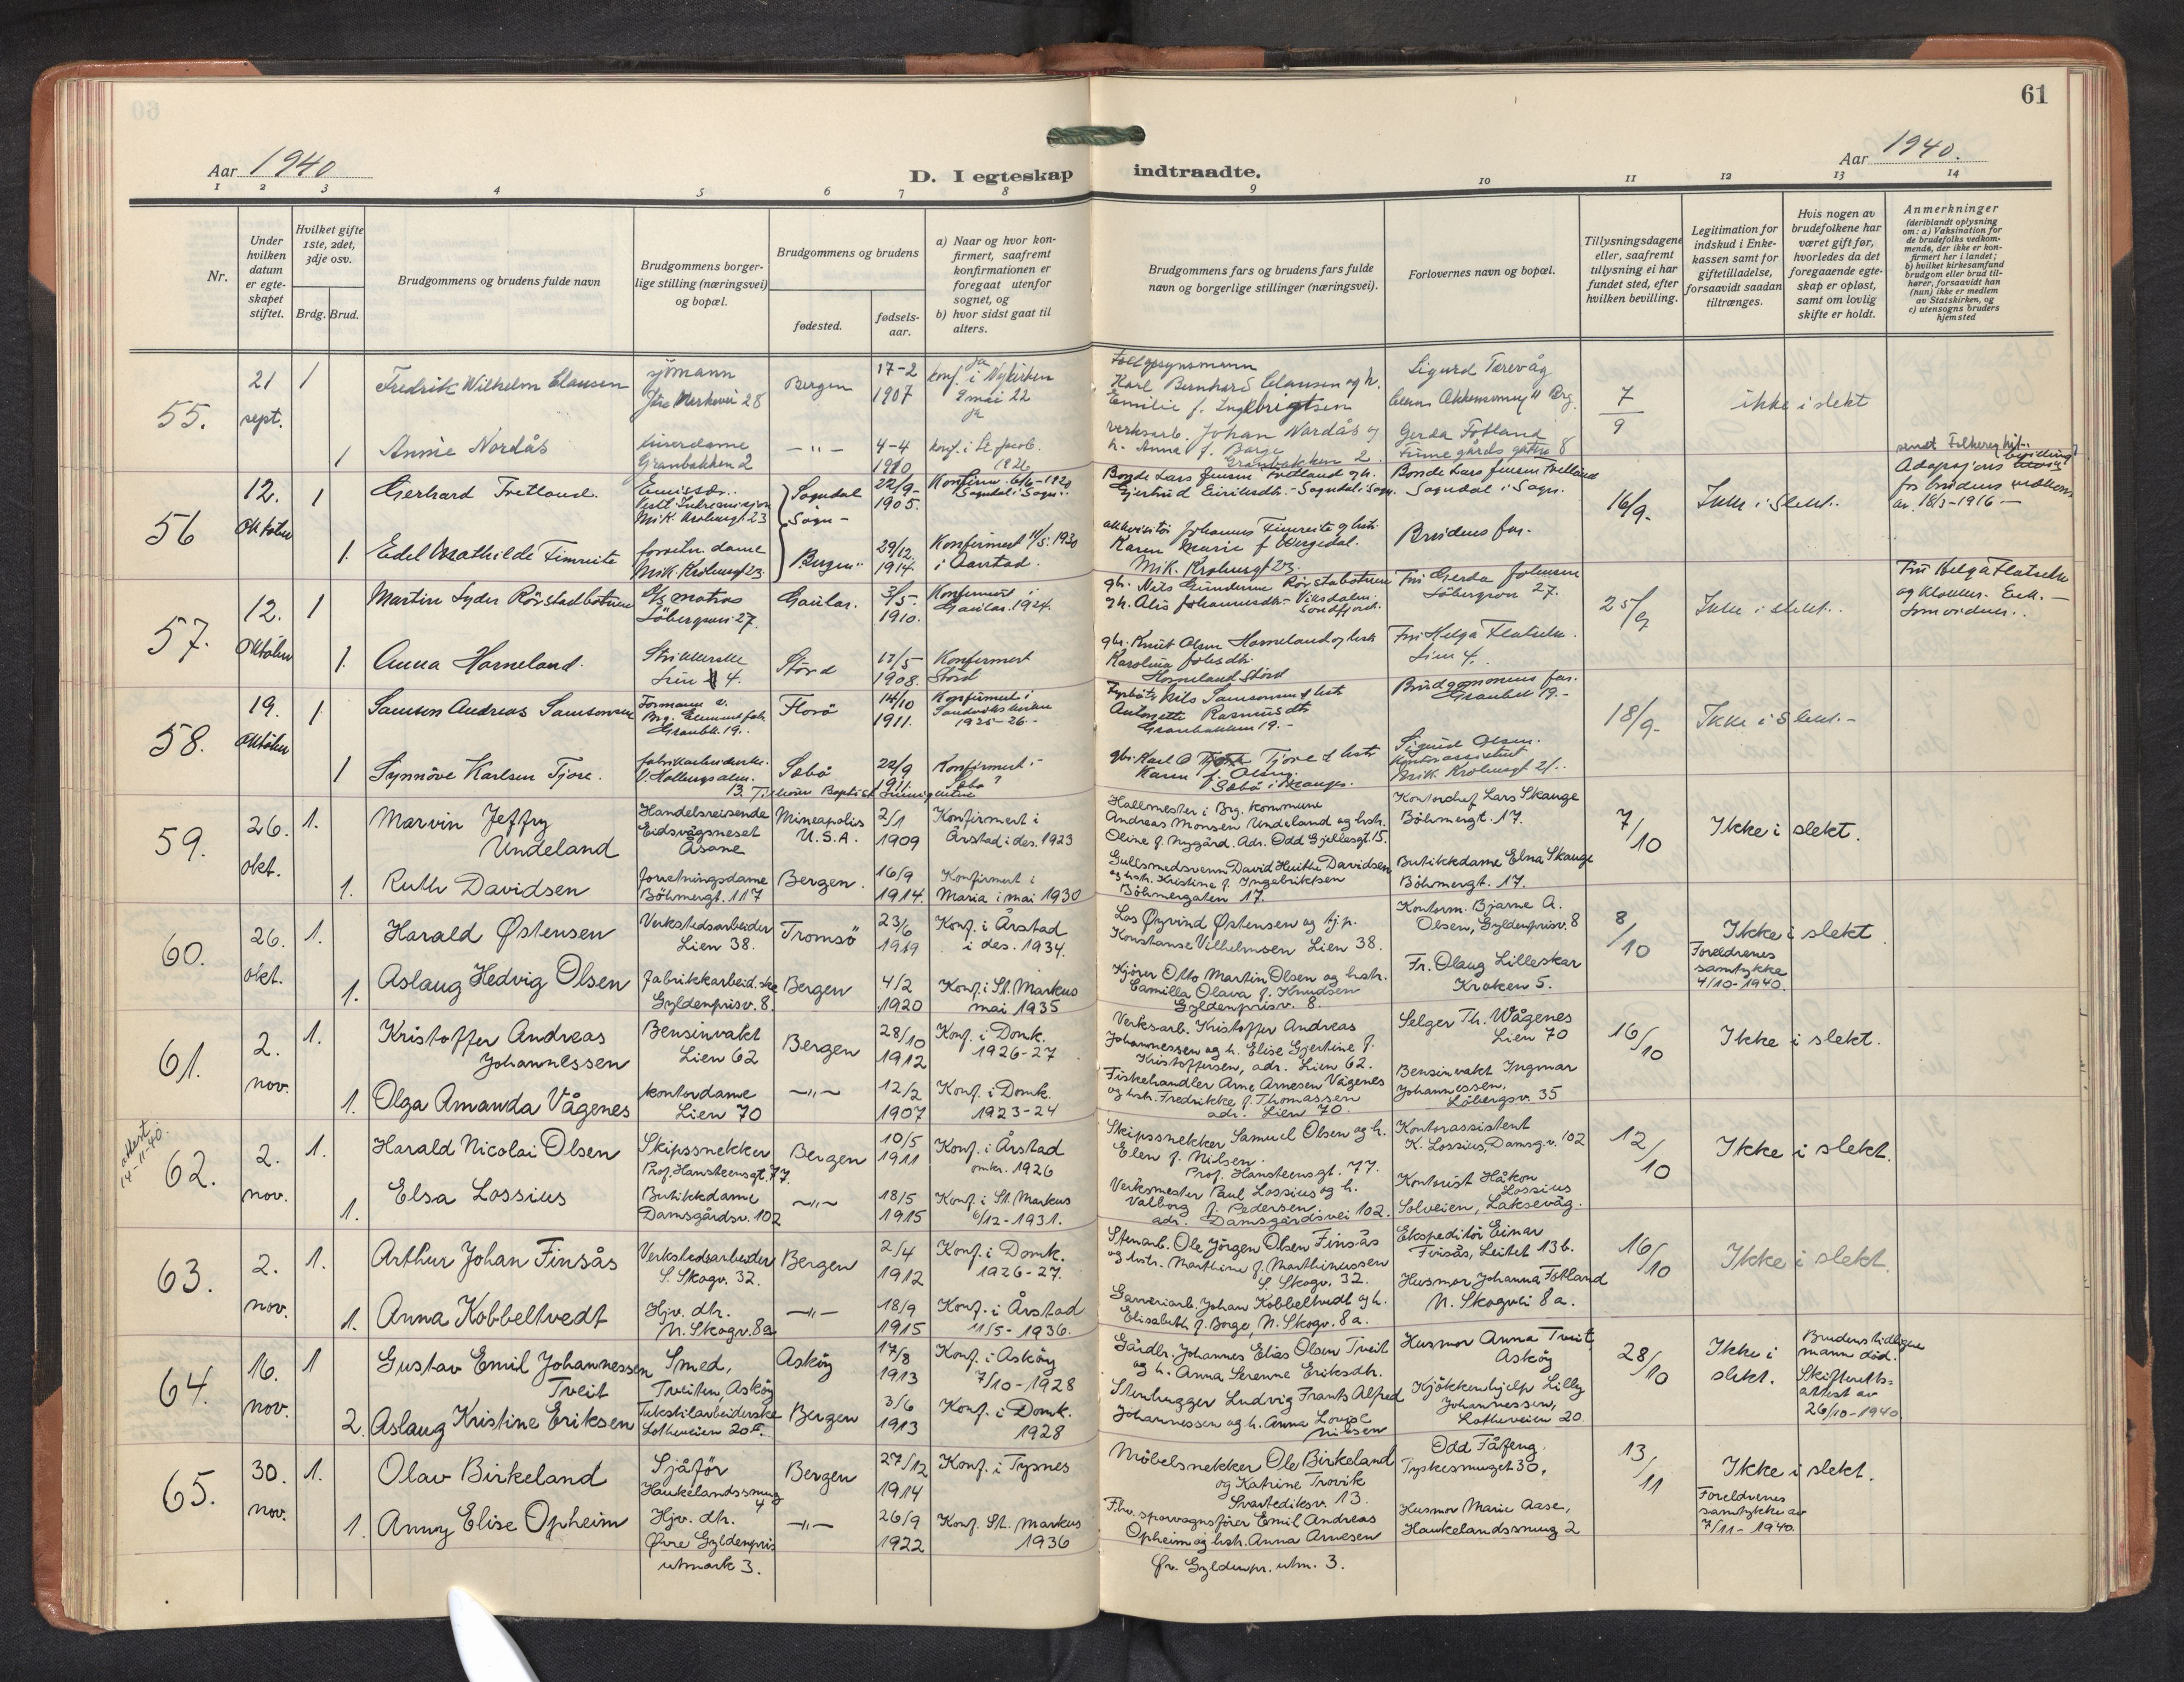 61
Aar 1940
D. I egteskap indtraadte.
Aar 1940.
1 2 3 4 5 6 7 8 9 10 11 12 13 14
Nr.
Under hvilken datum er egte-skapet stiftet.
Hvilket gifte 1ste, 2det, 3dje osv.
Brdg. Brud.
Brudgommens og brudens fulde navn
Brudgommens borger-lige stilling (næringsvei) og bopæl.
Brudgommens og brudens
fødested.
fødsels-aar.
a) Naar og hvor kon-firmert, saafremt konfirmationen er foregaat utenfor sognet, og
b) hvor sidst gaat til alters.
Brudgommens fars og brudens fars fulde navn og borgerlige stillinger (næringsvei).
Forlovernes navn og bopæl.
Tillysningsdagene eller, saafremt tillysning ei har fundet sted, efter hvilken bevilling.
Legitimation for indskud i Enke-kassen samt for giftetilladelse, forsaavidt saadan tiltrænges.
Hvis nogen av brudefolkene har været gift før, hvorledes da det foregaaende egte-skap er opløst, samt om lovlig skifte er holdt.
Anmerkninger
(deriblandt oplysning om: a) Vaksination for de brudefolks vedkom-mende, der ikke er kon-firmert her i landet; b) hvilket kirkesamfund brudgom eller brud til-hører, forsaavidt han (hun) ikke er medlem av Statskirken, og c) utensogns bruders hjemsted
55. 21 sept. 1
Fredrik Wilhelm Clausen
sjømann
Bergen
17-2 1907
konf. i Nykirken
9 mai 22
Karl Bernhard Clausen og h.
Emilie f. Ingebrigtsen
Sigurd Tarevåg
7/9
ikke i slekt
1 Annie Nordås
Granbakken 2
-"-
4-4 1910
konf. i St. Jacob.
1926
verksarb. Johan Nordås og
h. Anna f. Borge
Granbakken 2
Gerda Fotland
56 12. Oktober 1
Gerhard Fretland.
Mik. Krohnsgt 23
Sogndal Sogn-
22/9- 1905.
Sogndal i Sogn.
Bonde Lars Jensen Fretland og h.
Gjertrud Eiriksdtr. - Sogndal i Sogn.
Bonde Lars Jensen Fretland
Sogndal i Sogn.
16/9-
Ikke i slekt.
1. Edel Mathilde Fimreite
forretn. dame
Mik. Krohnsgt 23.
Bergen
29/12. 1914.
Konfirmert 11/5. 1930
i Årstad.
akkvisitør Johannes Fimreite og hstr.
Karen Marie f.
Mik. Krohnsgt 23.
Brudens far.
57. 12. Oktober 1
Martin Syder Rörstadbotnen
Löbergsvei 27.
Gaular.
3/5- 1910.
Konfirmert i
Gaular. 1924.
Fru Gerda Johnsen
Löbergsvei 27.
25/9
Ikke i slekt.
Fru Helga Flatseth
1. Anna Horneland.
Strikkerske
Lien 4.
Stord
17/5 1908.
Konfirmert
Stord
gbr. Knut Olsen Horneland og hstr
Karolina Johsdtr.
Horneland Stord
Fru Helga Flatseth.
Lien 4.
58. 19. Oktober 1
Samson Andreas Samsonsen
Formann v.
Granbk. 19.
Florö
14/10 1911.
Konfirmert i
Sandvikskirken
1925-26.-
Fyrbøter Nils Samsonsen & hstr
Antonette Rasmusdtr
Granbakken 19.-
Brudgommens far.
Granbk 19.-
18/9-
Ikke i slekt.-
1 Synnöve Karlsen Tjore.
fabrikarbeiderske.
Sæbö
22/9 1911.
Konfirmert.-
gbr. Karl O. Tjore & hstr
Karen f. Olsen.
Sigurd Olsen.
Kontorassistent
Mik. Krohnsgt 21.
59. 26. okt. 1.
Marvin Jeffry
Undeland
Handelsreisende
Eidsvågsneset
Åsane
Mineapolis
U.S.A.
2/1 1909
Konfirmert i
Årstad i des. 1923
Hallmester i Brg. kommune
Andreas Monsen Undeland og hstr.
Oline f. Nygård. Adr. Odd Gjellesgt. 15.
Kontorchef Lars Skauge
Böhmergt. 17.
7/10
Ikke i slekt.
1. Ruth Davidsen
forretningsdame
Böhmergt. 117
Bergen.
16/9 1914.
Konfirmert i
Maria i mai 1930
Gullsmedsvenn David Huithe Davidsen
og hstr. Kristine f. Ingebriktsen
Böhmergaten 17.
Butikkdame Elna Skauge
Böhmergt. 17.
60. 26. okt. 1.
Harald Østensen
Verkstedsarbeider
Lien 38.
Tromsö
23/6 1919
Konf. i Årstad
i des. 1934.
Los Øyvind Østensen og tj.p.
Konstanse Vilhelmsen Lien 38.
Kontorm. Bjarne A.
Olsen, Gyldenprisv. 8
8/10
Ikke i slekt
Foreldrenes
samtykke
4/10-1940.
1. Aslaug Hedvig Olsen
Fabrikkarbeid.ske
Gyldenprisv. 8.
Bergen
4/2 1920
Konf. i St. Markus
mai 1935
Kjører Otto Martin Olsen og hstr.
Camilla Olava f. Knudsen
Gyldenprisv. 8.
Fr. Olaug Lilleskar
Kroken 5.
61. 2. nov. 1.
Kristoffer Andreas
Johannessen
Bensinvakt
Lien 62
Bergen
28/10 1912
Konf. i Domk.
1926-27
Verksarb. Kristoffer Andreas
Johannessen og h. Elise Gjertine f.
Kristoffersen, adr. Lien 62.
Selger Th. Wågenes
Lien 70
16/10
Ikke i slekt.
1. Olga Amanda Vågenes
kontordame
Lien 70
-"-
12/2 1907
Konf. i Domk.
1923-24
Fiskehandler Arne Arnesen Vågenes
og hstr. Fredrikke f. Thomassen
adr. Lien 70.
Bensinvakt Ingmar
Johannessen.
Löbergsv. 35
attest
14-11-40.
62. 2. nov. 1.
Harald Nicolai Olsen
Skipssnekker
Prof. Hansteensgt. 77.
Bergen
10/5 1911
Konf. i Årstad
omkr. 1926
Skipssnekker Samuel Olsen og h.
Elen f. Nilsen.
Prof. Hansteensgt. 77.
Kontorassistent
K. Lossius, Damsg.v. 102
12/10
Ikke i slekt.
1. Elsa Lossius
Butikkdame
Damsgårdsv. 102
-"-
18/5 1915
Konf. i St. Markus
6/12-1931.
Verksmester Paul Lossius og h.
Valborg f. Pedersen.
adr. Damsgårdsvei 102.
Kontorist Håkon
Lossius
Solveien, Laksevåg.
63. 2. nov. 1.
Arthur Johan Finsås
Verkstedsarbeider
S. Skogv. 32.
Bergen
2/4 1912
Konf. i Domk.
1926-27.
Stenarb. Ole Jörgen Olsen Finsås
og hstr. Marthine f. Marthinussen
S. Skogv. 32.
Ekspeditör Einar
Finsås, Leitet 13 b.
16/10
Ikke i slekt.
1. Anna Kobbeltvedt
Hjv. dtr.
N. Skogv. 8a
-"-
18/9 1915
Konf. i Årstad
11/5-1936.
Garveriarb. Johan Kobbeltvedt og h.
Elisabeth f. Borge, N. Skogv. 8a.
Husmor Johanna Fotland
N. Skogvei 8a.
64. 16. nov. 1
Gustav Emil Johannessen
Tveit
Smed,
Tveiten, Asköy
Asköy
17/8 1913
Konf. i Asköy
7/10-1928
Gårdbr. Johannes Elias Olsen Tveit
og h. Anna Serenne Eriksdtr.
Husmor Anna Tveit
Asköy
28/10
Ikke i
slekt.
Brudens tidligere
mann död.
Skifteretts=
attest av
26/10-1940
2. Aslaug Kristine Eriksen
Tekstilarbeiderske
Lotheveien 20 II.
Bergen
3/6 1913
Konf. i Domk.
1928
Stenhugger Ludvig Frants Alfred
Johannessen og h. Anna Lovise
Nilsen
Kjökkenhjelp Lilly
Johannessen,
Lotheveien 20.
65. 30. nov. 1.
Olav Birkeland
Sjåför
Haukelandssmug
4
Bergen
27/12 1914
Konf. i Tysnes
Möbelsnekker Ole Birkeland
og Katrine Trovik
Svartediksv. 13.
Odd Fåfeng.
Tyskesmuget 30,
13/11
Ikke i slekt.
Foreldrenes
samtykke av
7/11-1940.
1. Anny Elise Opheim
Hjv. dtr.
Øvre Gyldenpris
utmark 3.
-"-
26/9 1922
Konf. St. Markus
1936
Fhv. sporvognsfører Emil Andreas
Opheim og hstr. Anna Arnesen
Øv. Gyldenpr. utm. 3.
Husmor Marie Aase,
Haukelandssmug 2